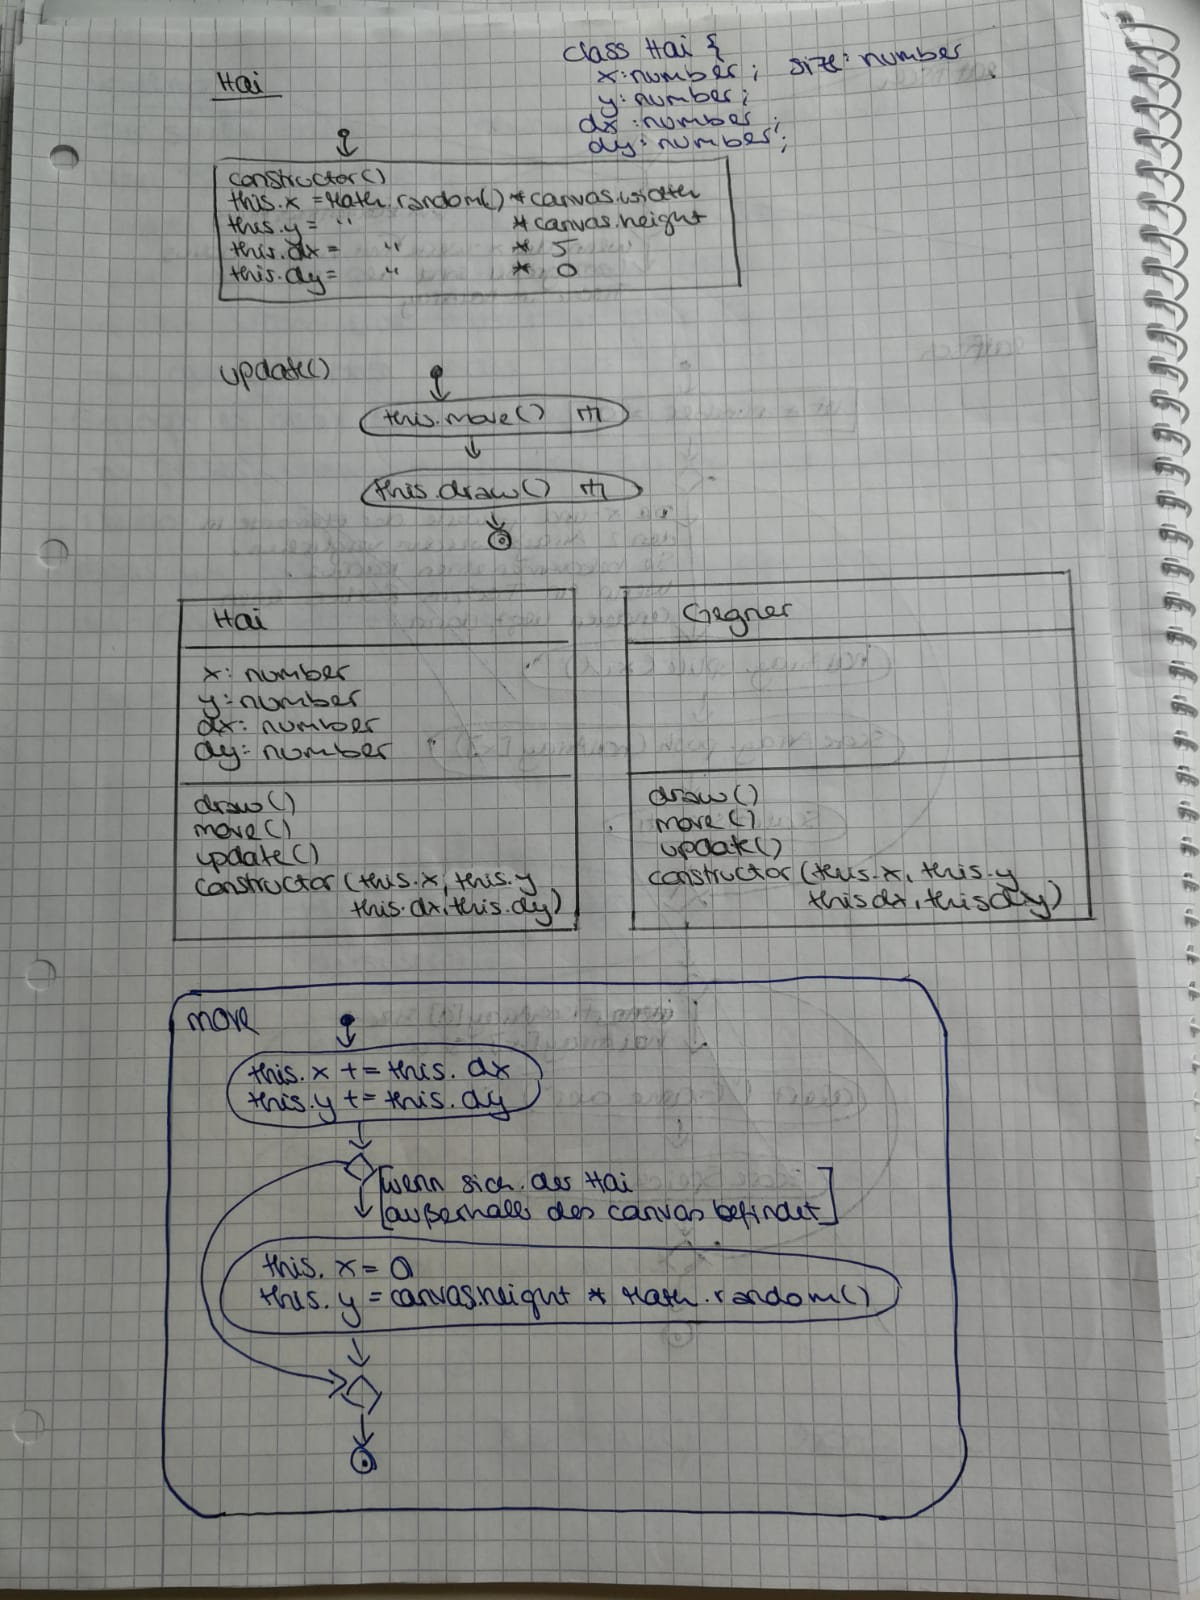 Hai
class Hai {
x: number; size: number
y: number;
dx: number;
dy: number;
constructor()
this.x = Math.random() * canvas.width
this.y = " * canvas.height
this.dx = " * 5
this.dy = " * 0
update()
this.move()
this.draw()
Hai
x: number
y: number
dx: number
dy: number
draw()
move()
update()
constructor (this.x, this.y
this.dx, this.dy)
Gegner
draw()
move()
update()
constructor (this.x, this.y
this dx, this dy)
move
this.x += this.dx
this.y += this.dy
[wenn sich der Hai
außerhalb des canvas befindet]
this.x = 0
this.y = canvas.height * Math.random()